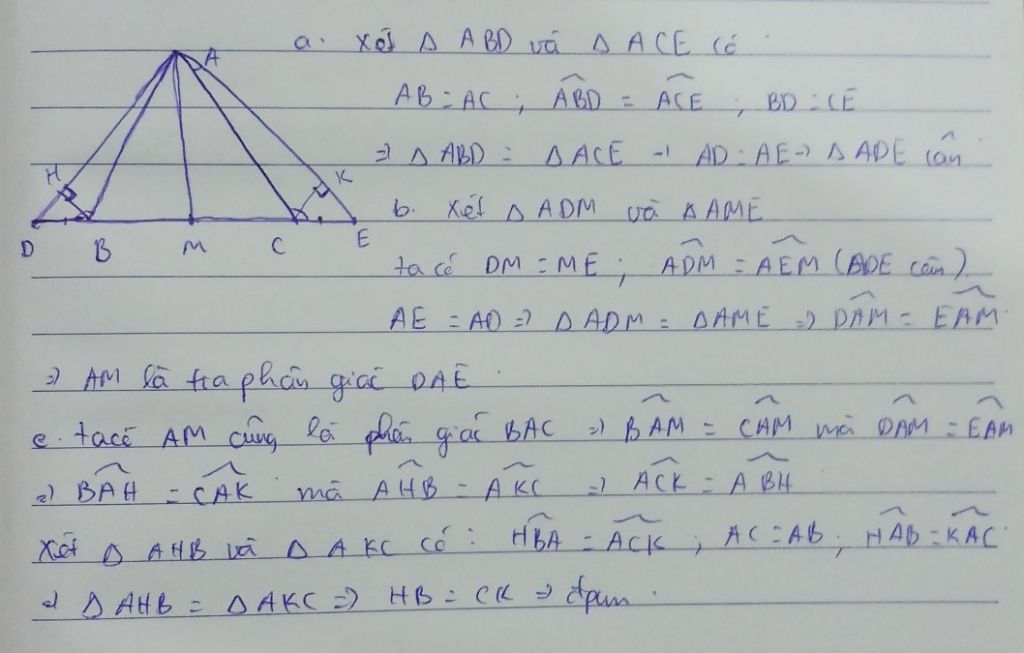 a. Xét Δ ABD và Δ ACE có
AB = AC ; ABD^ = ACE^ ; BD = CE
⇒ Δ ABD = Δ ACE → AD = AE → Δ ADE cân
b. Xét Δ ADM và Δ AME
ta có DM = ME ; ADM^ = AEM^ (ADE cân)
AE = AD ⇒ Δ ADM = ΔAME ⇒ DAM^ = EAM^
⇒ AM là tia phân giác DAE
c. ta có AM cũng là phân giác BAC ⇒ BAM^ = CAM^ mà DAM^ = EAM^
⇒ BAH^ = CAK^ mà AHB^ = AKC^ ⇒ ACK^ = ABH^
Xét Δ AHB và Δ AKC có : HBA^ = ACK^ ; AC = AB ; HAB^ = KAC^
⇒ Δ AHB = Δ AKC ⇒ HB = CK ⇒ đpcm.
A
H
K
D
B
M
C
E